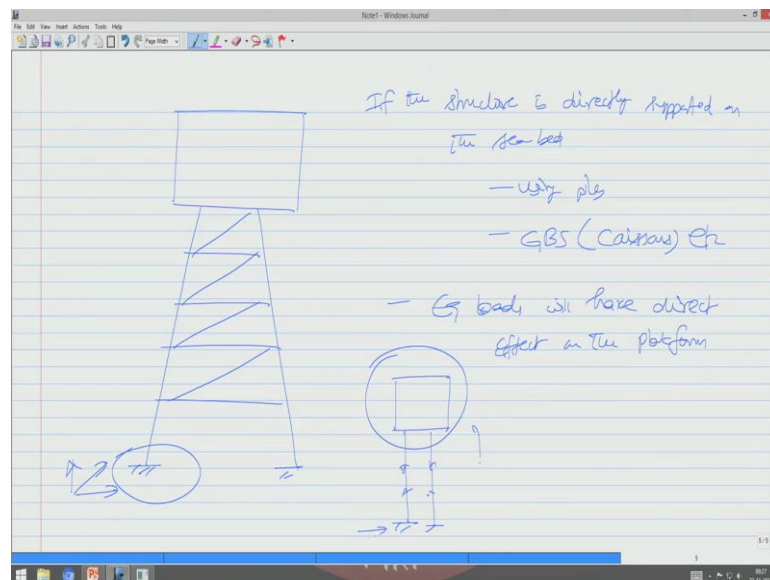 Note1 - Windows Journal
File Edit View Insert Actions Tools Help
Page Width
If the structure is directly supported on
the sea bed
— using piles
— GBS (Caissons) etc
— EQ loads will have direct
effect on the platform
5/5
5
09:27